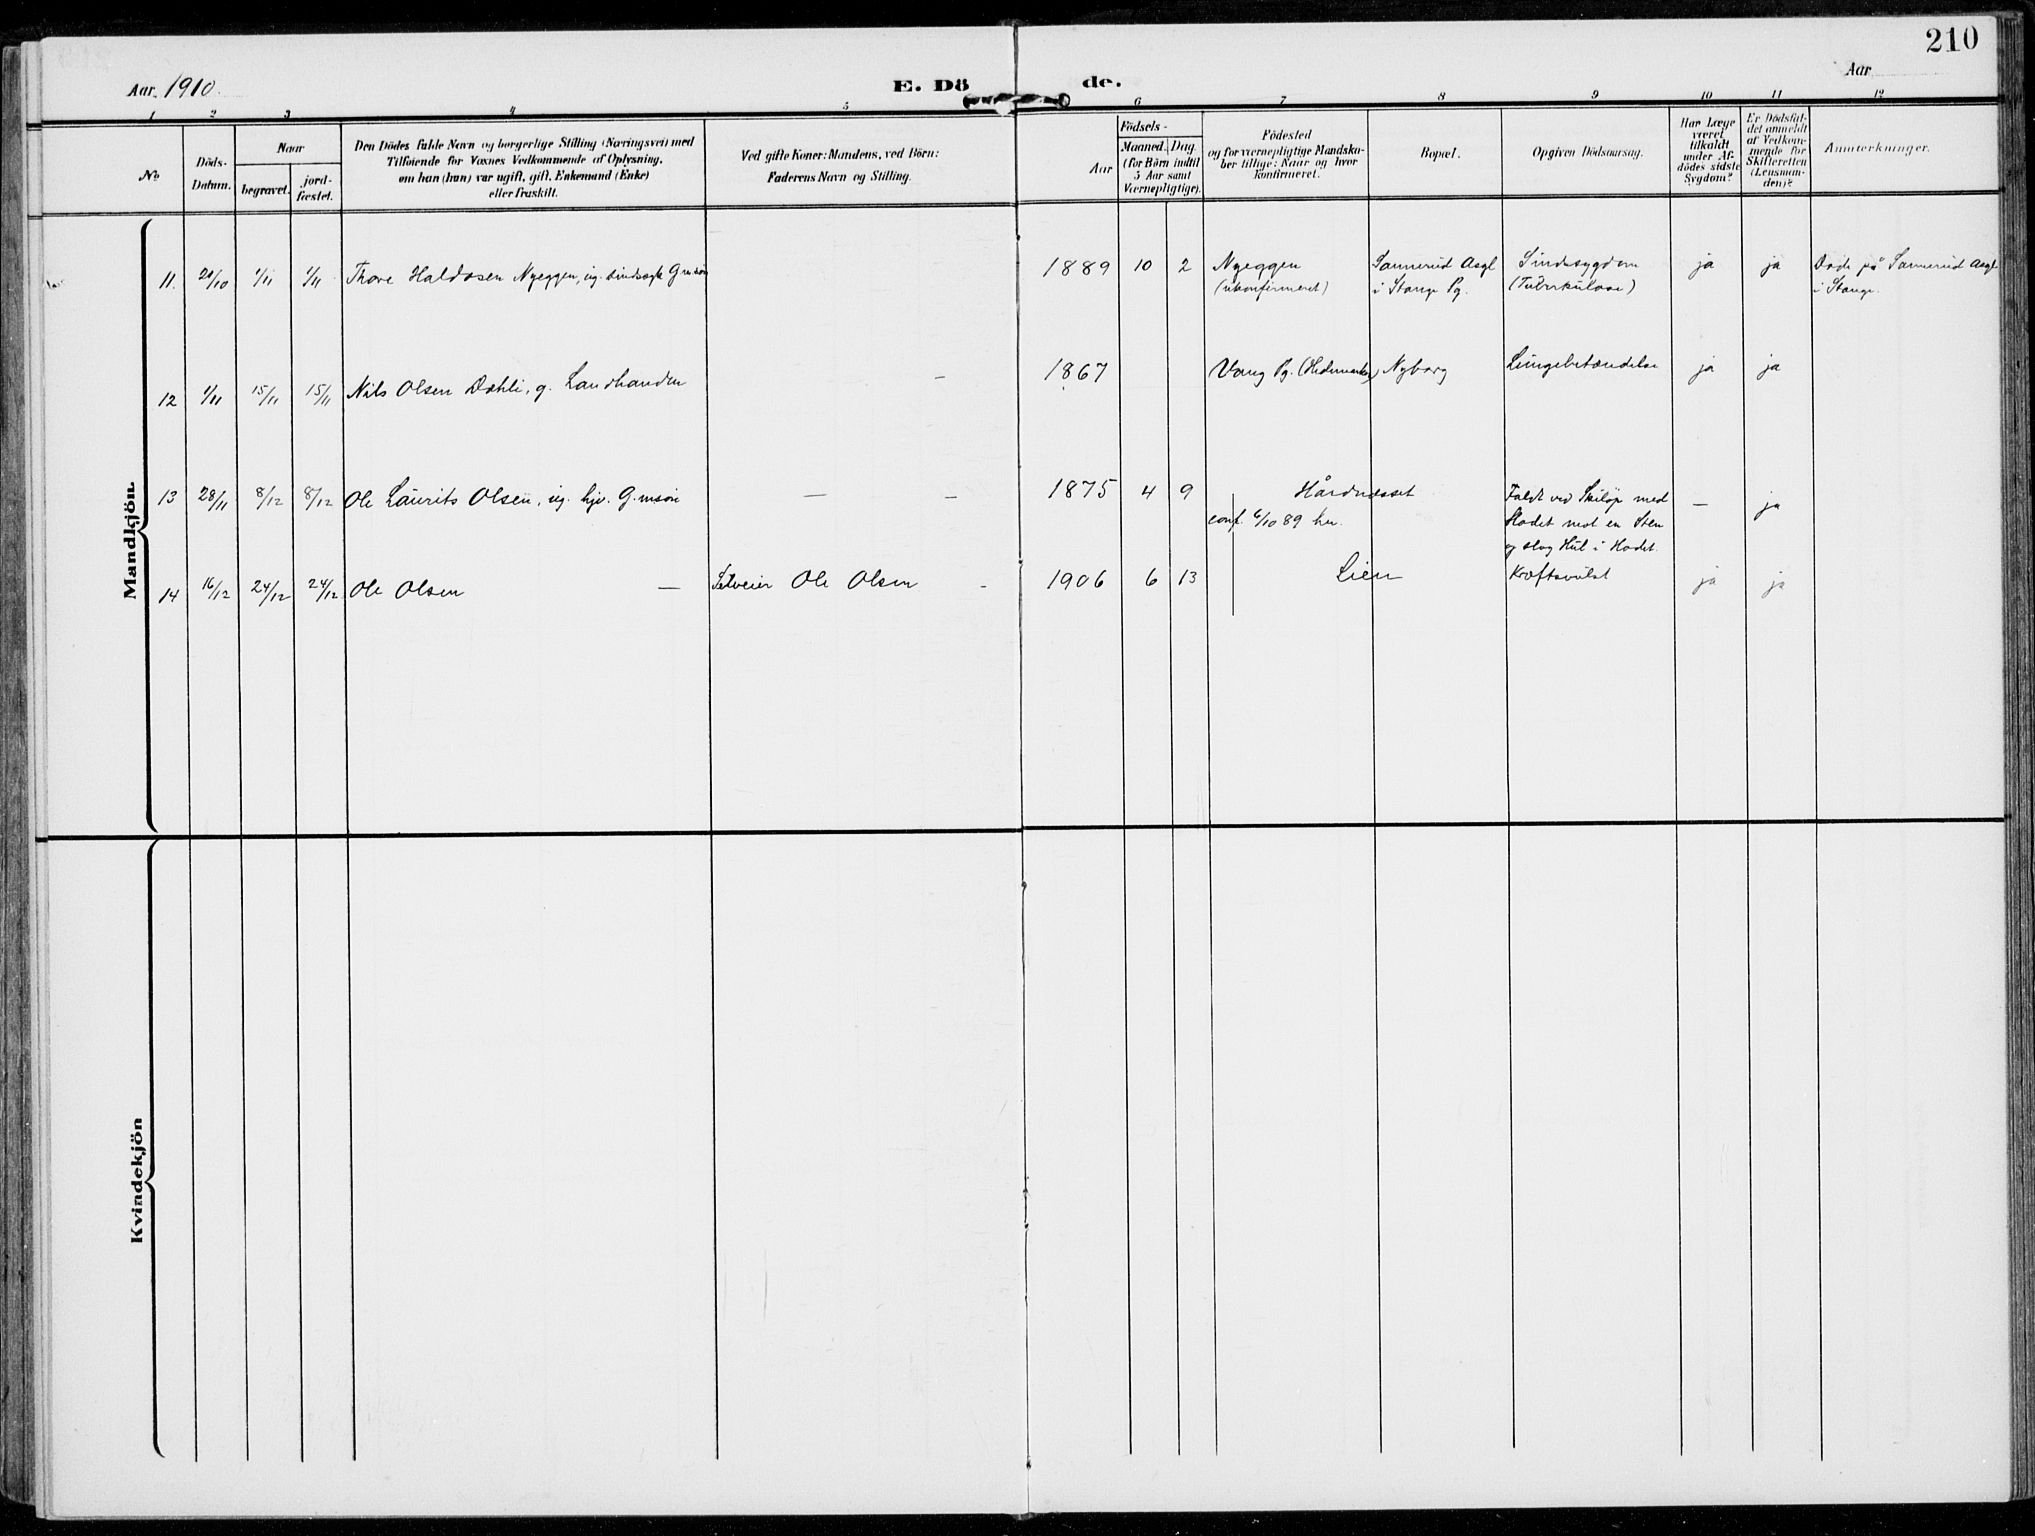 210
Aar 1910.
E. Dö
de.
Aar
1 2 3 4 5 6 7 8 9 10 11 12
No.
Döds-
Datum.
Naar
begravet.
jord-
fæstet.
Den Dödes fulde Navn og borgerlige Stilling (Næringsvei) med
Tilföiende for Voxnes Vedkommende af Oplysning,
om han (hun) var ugift, gift, Enkemand (Enke)
eller fraskilt.
Ved gifte Koner: Mandens, ved Börn:
Faderens Navn og Stilling.
Födsels-
Aar
Maaned.
Dag
(for Börn indtil
5 Aar samt
Værnepligtige).
Födested
og for værnepligtige Mandska-
ber tillige: Naar og hvor
konfirmeret.
Bopæl.
Opgiven Dödsaarsag.
Har Læge
været
tilkaldt
under Af-
dödes sidste
Sygdom?
Er Dödsfal-
det anmeldt
af Vedkom-
mende for
Skifteretten
(Lensman-
den)?
Anmærkninger.
Mandkjön.
11. 20/10 1/11 1/11 Thore Haldosen Nyeggen, ug. sindssyk Gmsön 1889 10 2 Nyeggen Sannerud Asyl Sindssygdom ja ja Døde på Sannerud Asyl
(ukonfirmeret) i Stange Pg. (Tuberkulose) i Stange.
12 1/11 15/11 15/11 Nils Olsen Dæhli, g. Landhandler — 1867 Vang Pg. (Hedemarken) Nyborg Lungebetændelse ja ja
13 28/11 8/12 8/12 Ole Laurits Olsen, ug. hjv. G.msön — — 1875 4 9 Hårdnæsset Faldt ved Skiløp med — ja
conf. 6/10 89 her. Hodet mot en Sten
og slog Hul i Hodet.
14 16/12 24/12 24/12 Ole Olsen — Selveier Ole Olsen - 1906 6 13 Lien Kræftsvulst ja ja
Kvindekjön